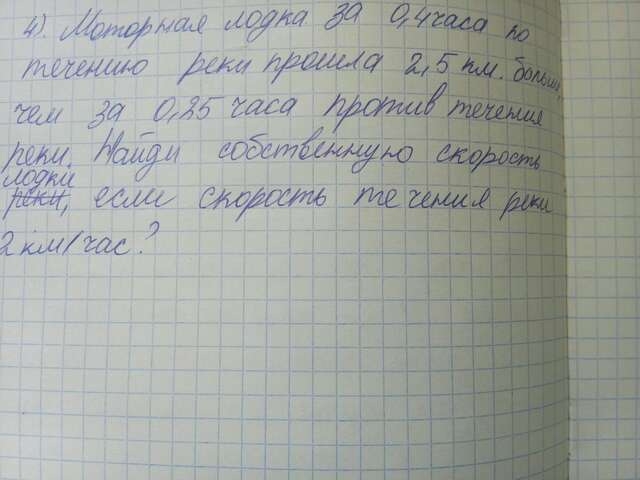 4). Моторная лодка за 0,4 часа по
течению реки прошла 2,5 км. больше,
чем за 0,25 часа против течения
реки. Найди собственную скорость
лодки
реки, если скорость течения реки
2 км/час?